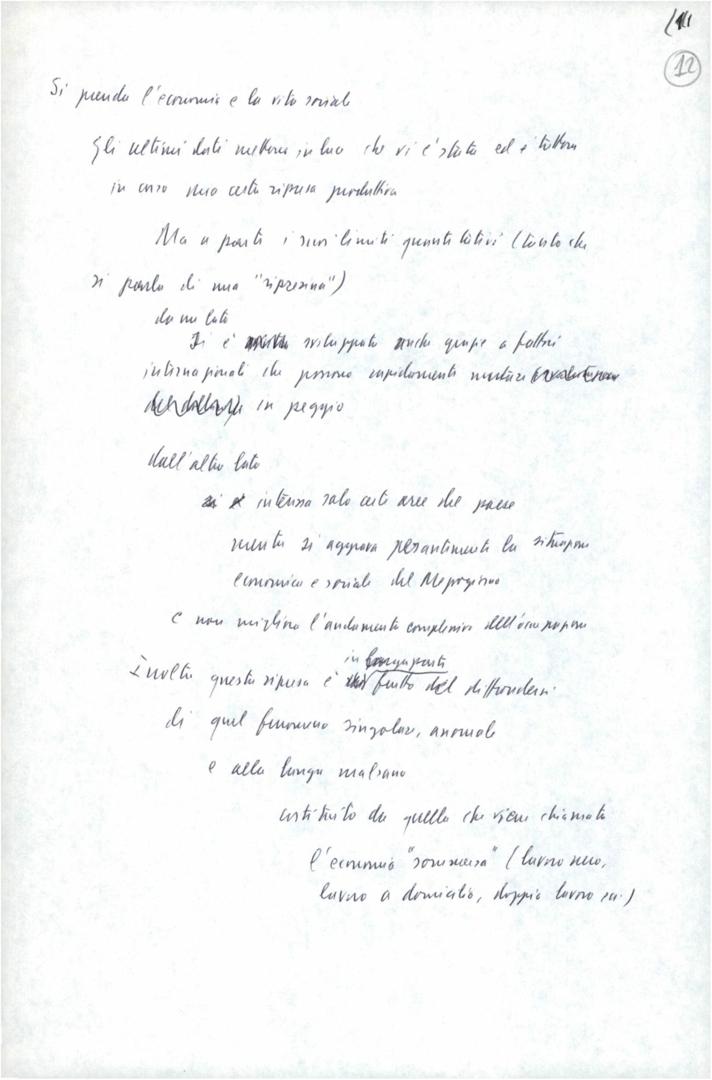 12
Si prenda l'economia e la vita sociale
Gli ultimi dati mettono in luce che vi è stata ed è tuttora
in corso una certa ripresa produttiva
Ma a parte i suoi limiti quantitativi (tanto che
si parla di una "ripresina")
da un lato
si è sviluppata anche grazie a fattori
internazionali che possono rapidamente mutare
in peggio
dall'altro lato
interessa solo certe aree del paese
mentre si aggrava pesantemente la situazione
economica e sociale del Mezzogiorno
e non migliora l'andamento complessivo dell'occupazione
in larga parte
Inoltre questa ripresa è frutto del diffondersi
di quel fenomeno singolare, anomalo
e alla lunga malsano
costituito da quella che viene chiamata
l'economia "sommersa" (lavoro nero,
lavoro a domicilio, doppio lavoro ecc.)